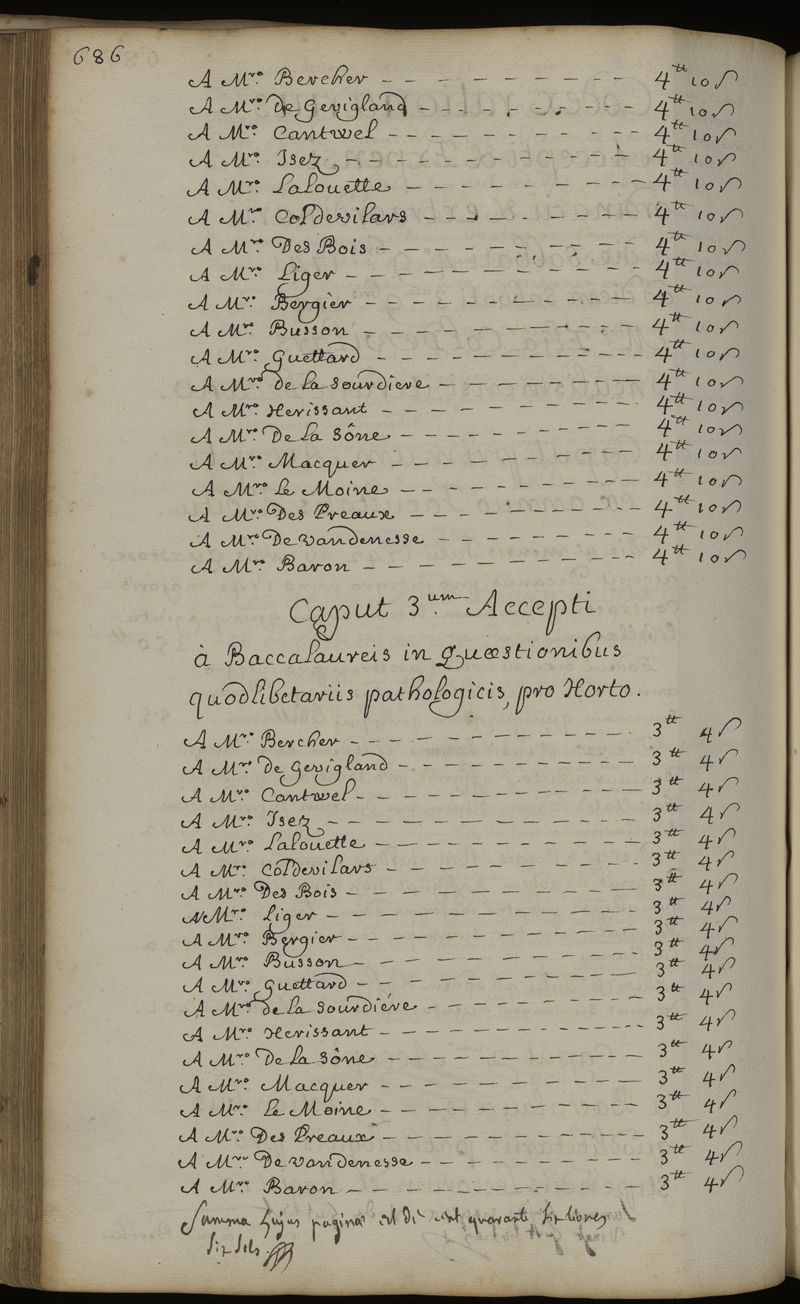 686
A Mre. Bercher 4tt 10s
A Mre. de Gevigland 4tt 10s
A Mre. Cantwel 4tt 10s
A Mre. Isez 4tt 10s
A Mre. Lalouette 4tt 10s
A Mre. Coldevilars 4tt 10s
A Mre. Des Bois 4tt 10s
A Mre. Liger 4tt 10s
A Mre. Bergier 4tt 10s
A Mre. Busson 4tt 10s
A Mre. Guettard 4tt 10s
A Mre. de la Sourdiere 4tt 10s
A Mre. Herissant 4tt 10s
A Mre. De la Sône 4tt 10s
A Mre. Macquer 4tt 10s
A Mre. Le Moine 4tt 10s
A Mre. Des Preaux 4tt 10s
A Mre. De Vandenesse 4tt 10s
A Mre. Baron 4tt 10s
Caput 3um. Accepti
à Baccalaureis in quæstionibus
quodlibetariis pathologicis, pro Horto.
A Mre. Bercher 3tt 4s
A Mre. De Gevigland 3tt 4s
A Mre. Cantwel 3tt 4s
A Mre. Isez 3tt 4s
A Mre. Lalouette 3tt 4s
A Mre. Coldevilars 3tt 4s
A Mre. Des Bois 3tt 4s
A Mre. Liger 3tt 4s
A Mre. Bergier 3tt 4s
A Mre. Busson 3tt 4s
A Mre. Guettard 3tt 4s
A Mre. de la Sourdiére 3tt 4s
A Mre. Herissant 3tt 4s
A Mre. De la Sône 3tt 4s
A Mre. Macquer 3tt 4s
A Mre. Le Moine 3tt 4s
A Mre. Des Preaux 3tt 4s
A Mre. De Vandenesse 3tt 4s
A Mre. Baron 3tt 4s
Summa hujus paginæ est de cent quarante six livres
six sols.